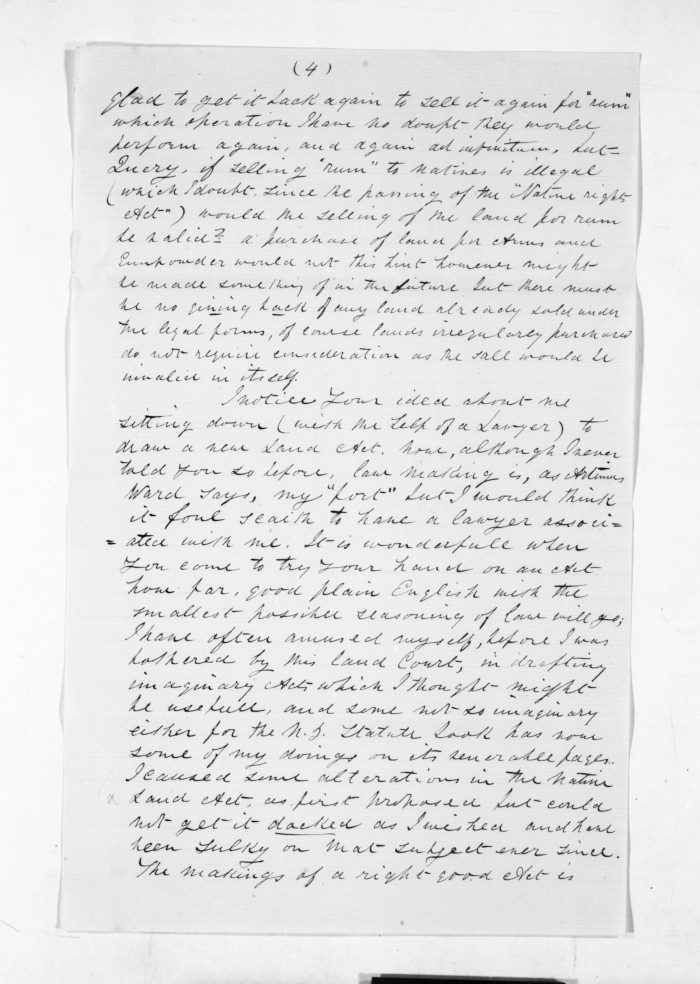 (4)
glad to get it back again to sell it again for "rum"
which operation I have no doubt they would
perform again, and again ad infinitum, but-
Query, if selling "rum" to natives is illegal
(which I doubt, since the passing of the "Native rights
Act") would the selling of the land for rum
be valid? a purchase of land for Arms and
Gunpowder would not this hint however might
be made something of in the future but there must
be no giving back of any land already sold under
the legal forms, of course lands irregularly purchased
do not require consideration as the sale would be
invalid in itself.
I notice your idea about me
sitting down (with the help of a Lawyer) to
draw a new Land Act. now, although I never
told you so before, law making is, as Artemus
Ward says, my "fort" but I would think
it foul scaith to have a lawyer associ=
=ated with me. It is wonderfull when
you come to try your hand on an Act
how far, good plain English with the
smallest possible seasoning of law will go;
I have often amused myself, before I was
bothered by this land Court, in drafting
imaginary Acts which I thought might
be usefull, and some not so imaginary
either for the N.Z. Statute book has now
some of my doings on its venerable pages.
I caused some alterations in the Native
Land Act, as first proposed but could
not get it docked as I wished and have
been sulky on that subject ever since.
The makings of a right good Act is